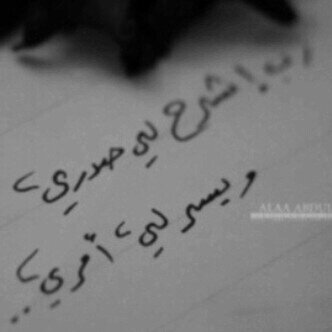 رب إشرح لي صدري
ويسر لي أمري..
ALAA ABDUL